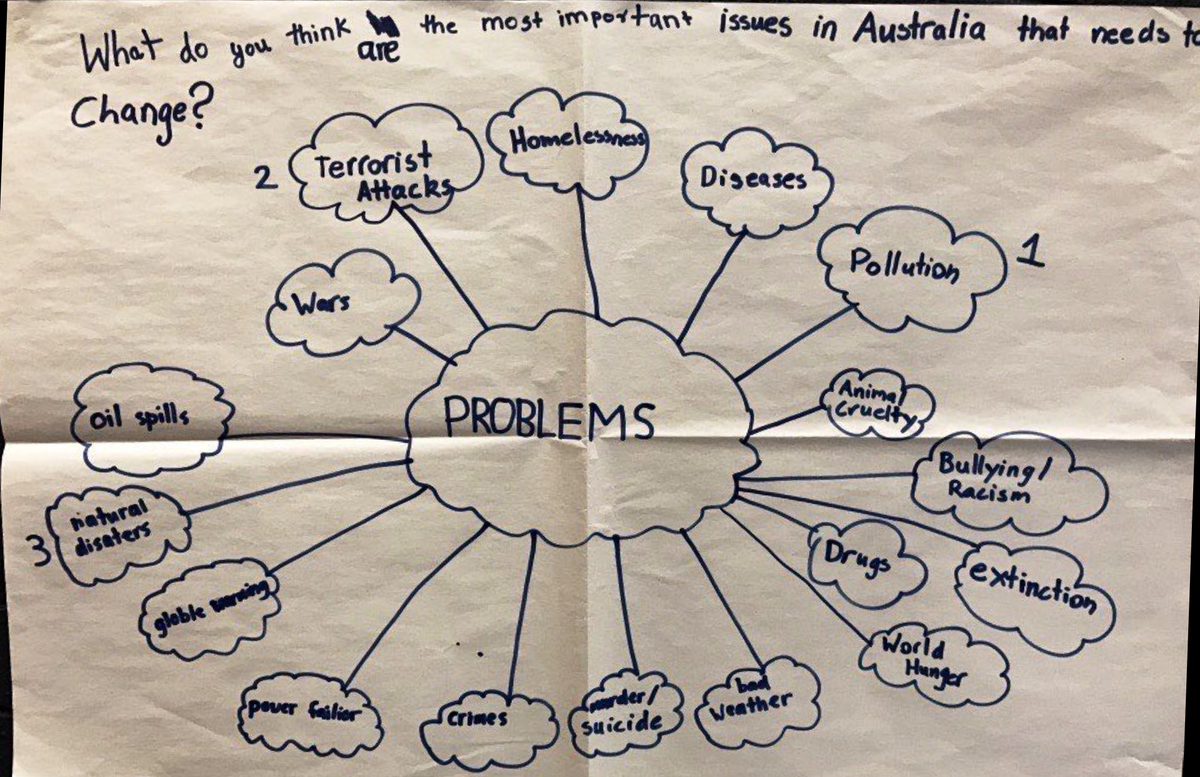 What do you think are the most important issues in Australia that needs to
Change?
2
Terrorist
Attacks
Homelessness
Diseases
Pollution
1
Wars
Animal
Cruelty
oil spills
PROBLEMS
Bullying/
Racism
natural
disaters
3
Drugs
extinction
globle warming
World
Hunger
power failior
crimes
murder/
suicide
bad
weather